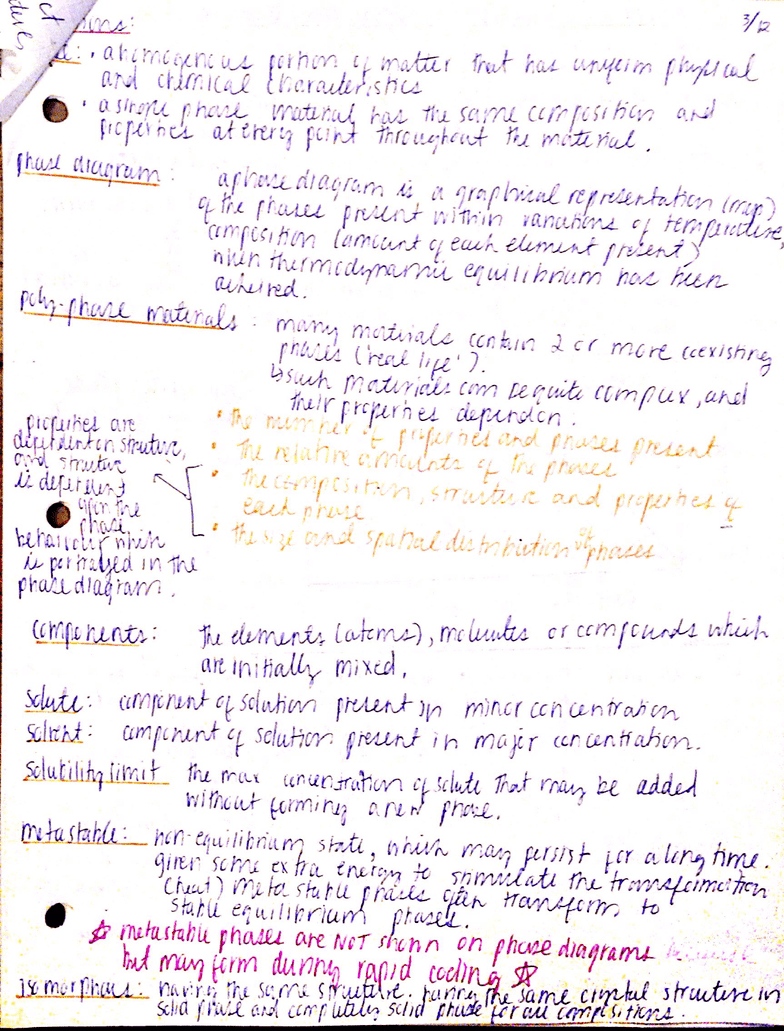 3/12
ct
ions:
• a homogenous portion of matter that has uniform physical
and chemical characteristics
• a single phase material has the same composition and
properties at every point throughout the material.
phase diagram: a phase diagram is a graphical representation (map)
of the phases present within variations of temperature,
composition (amount of each element present)
when thermodynamic equilibrium has been
acheived.
poly-phase materials: many materials contain 2 or more coexisting
phases ('real life').
↳ such materials can be quite complex, and
their properties depend on:
• the number of properties and phases present
• the relative amounts of the phases
• the composition, structure and properties of
each phase
• the size and spatial distribution of phases
properties are
dependent on structure,
and structure
is dependent
upon the
phase
behaviour which
is portrayed in the
phase diagram.
components: the elements (atoms), molecules or compounds which
are initially mixed.
solute: component of solution present in minor concentration
solvent: component of solution present in major concentration.
solubility limit the max concentration of solute that may be added
without forming a new phase.
metastable: non-equilibrium state, which may persist for a long time.
given some extra energy to stimulate the transformation
(heat) meta stable phases often transform to
stable equilibrium phases.
☆ metastable phases are NOT shown on phase diagrams because
but may form during rapid cooling ☆
isomorphous: having the same structure. having the same crystal structure in
solid phase and completely solid phase for all compositions.